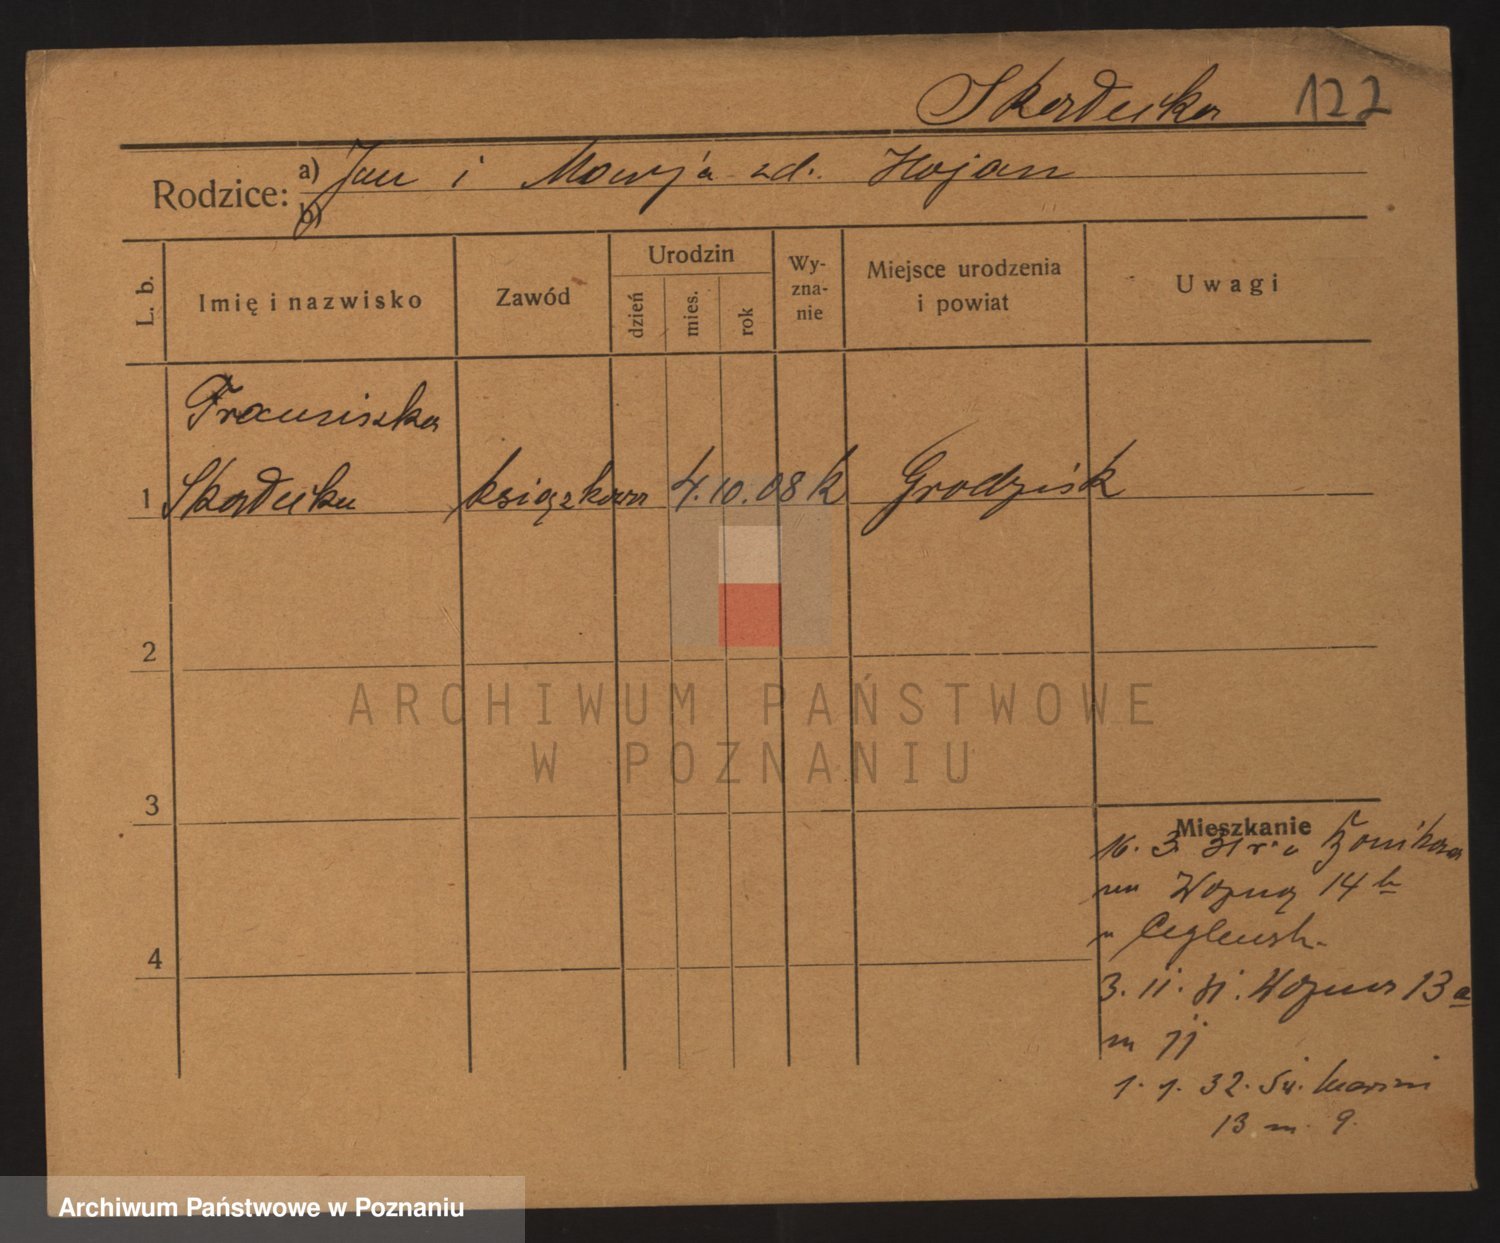 Skordecka 122
Rodzice: a) Jan i Marja zd. Hojan
b)
L. b.
Imię i nazwisko
Zawód
Urodzin
dzień
mies.
rok
Wy-
zna-
nie
Miejsce urodzenia
i powiat
Uwagi
Franciszka
1 Skordecka książkowa 4. 10. 08 k Grodzisk
2
3
4
Mieszkanie
16. 3. 31 r. z
na Woźną 14
3. 11. 31. Woźna 13 a
m 11
1. 1. 32. Św. Marcin
13 m. 9.
ARCHIWUM PAŃSTWOWE
W POZNANIU
Archiwum Państwowe w Poznaniu